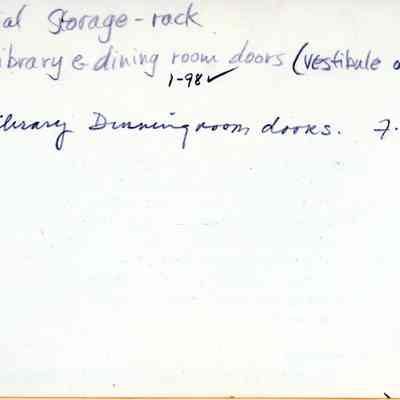 ial Storage-rack
ibrary & dining room doors (vestibule a
1-98 ✓
ibrary Dinning room doors. 7.